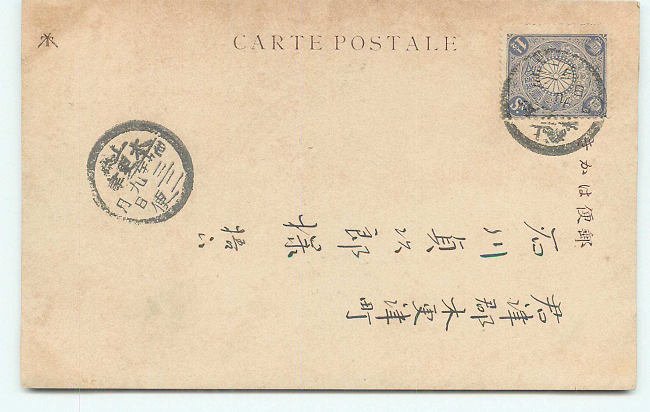 CARTE POSTALE
郵便はかき
君津郡木更津町
石川貞次郎様
上総
木更津